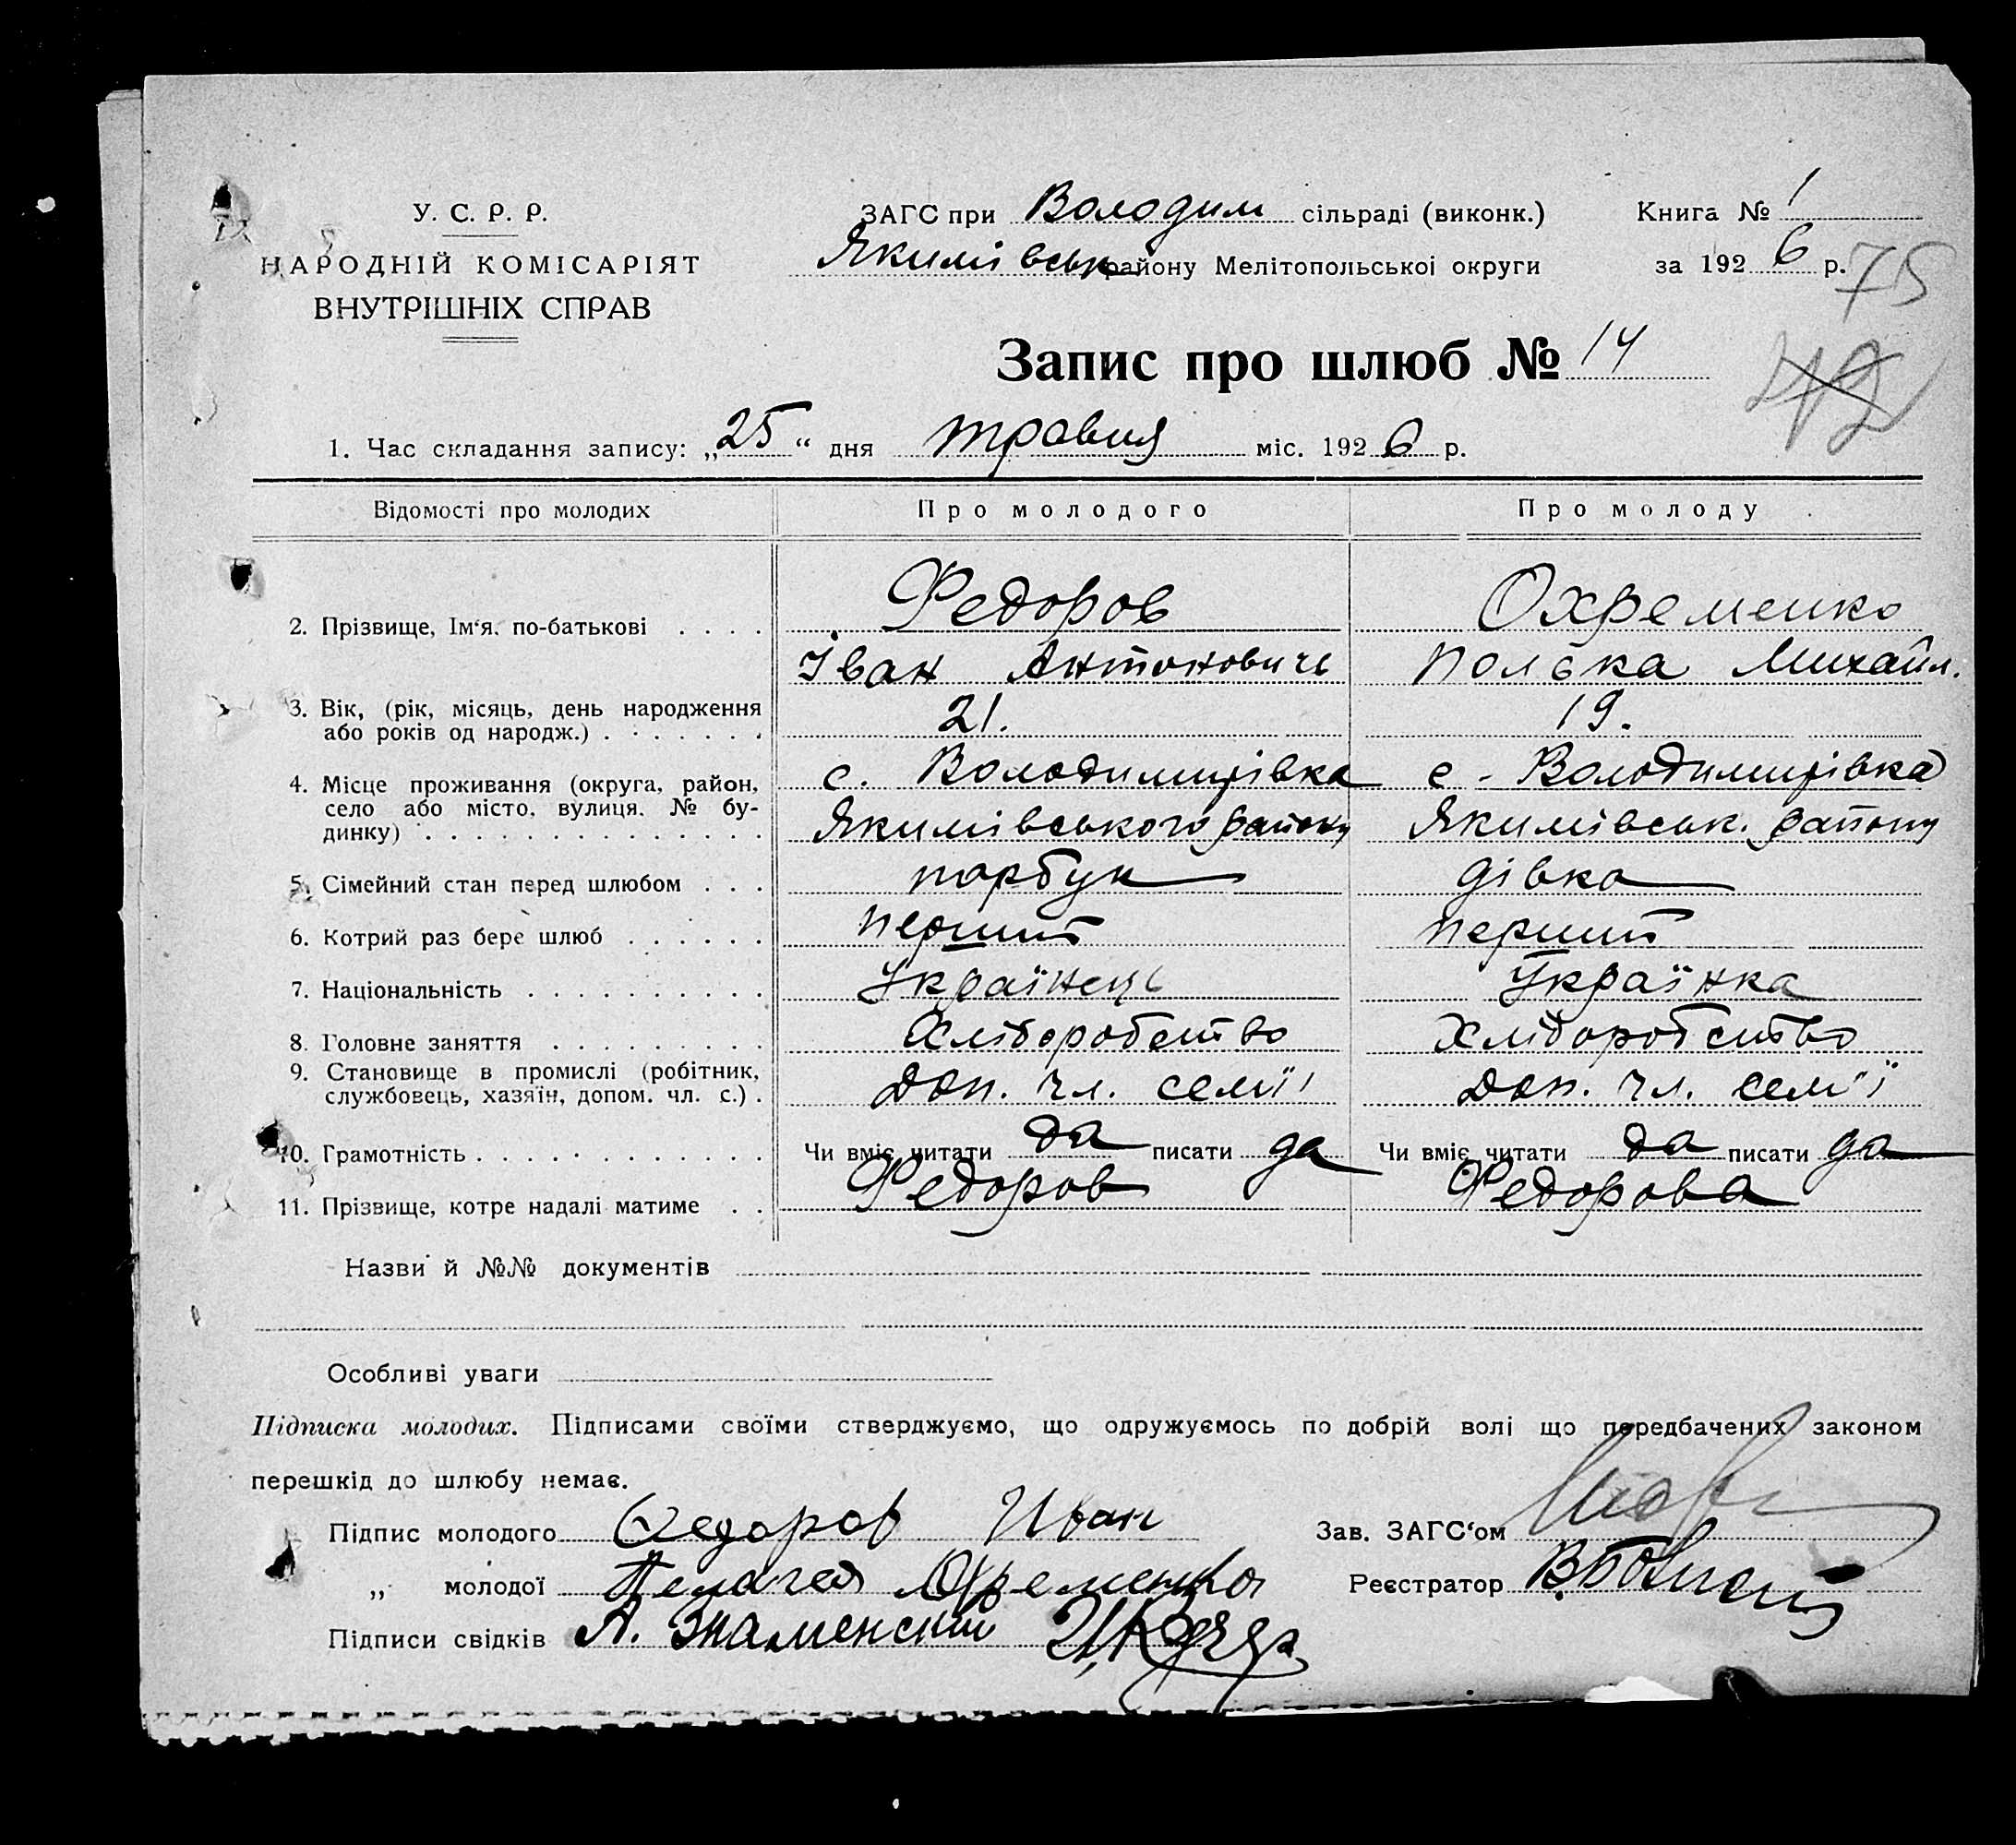 У. С. Р. Р.
НАРОДНІЙ КОМІСАРІЯТ
ВНУТРІШНІХ СПРАВ
ЗАГС при Володим сільраді (виконк.)
Якимівськ району Мелітопольськоі округи
Книга № 1
за 1926 р.
75
Запис про шлюб № 14
1. Час складання запису: „25“ дня травня міс. 1926 р.
Відомості про молодих Про молодого Про молоду
2. Прізвище, Ім‘я, по-батькові . . . . Федоров Охременко
Іван Антоновичь Полька Михайл.
3. Вік, (рік, місяць, день народження
або років од народж.) . . . . . . . 21. 19.
4. Місце проживання (округа, район, с. Володимирівка с - Володимирівка
село або місто, вулиця, № бу-
динку) . . . . . . . . . . . . . . Якимівського району Якимівськ. району
5. Сімейний стан перед шлюбом . . . парбук дівка
6. Котрий раз бере шлюб . . . . . . перший перший
7. Національність . . . . . . . . . . Українець Українка
8. Головне заняття . . . . . . . . . Хліборобство Хліборобство
9. Становище в промислі (робітник,
службовець, хазяїн, допом. чл. с.) . Доп. чл. семїі Доп. чл. сем'ї
10. Грамотність . . . . . . . . . . . . Чи вміє читати да писати да Чи вміє читати да писати да
11. Прізвище, котре надалі матиме . . Федоров Федорова
Назви й №№ документів
Особливі уваги
Підписка молодих. Підписами своїми стверджуємо, що одружуємось по добрій волі що передбачених законом
перешкід до шлюбу немає.
Підпис молодого Федоров Иван Зав. ЗАГС‘ом
„ молодої Пелагея Охременко Реєстратор
Підписи свідків А. Знаменский